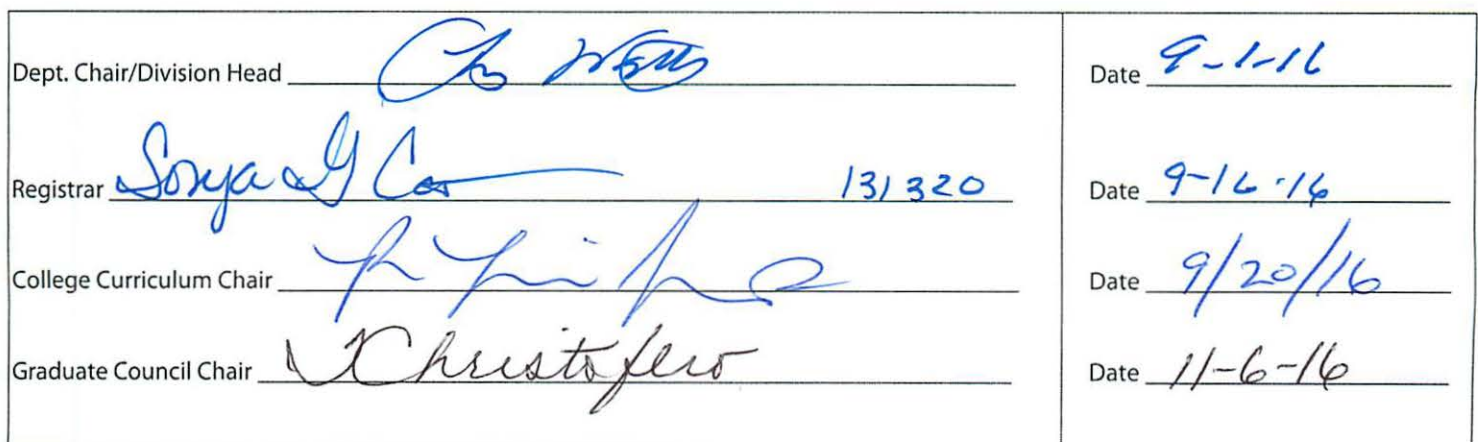 Dept. Chair/Division Head Date 9-1-16
Registrar Sonya G 131320 Date 9-16-16
College Curriculum Chair Date 9/20/16
Graduate Council Chair Christofero Date 11-6-16